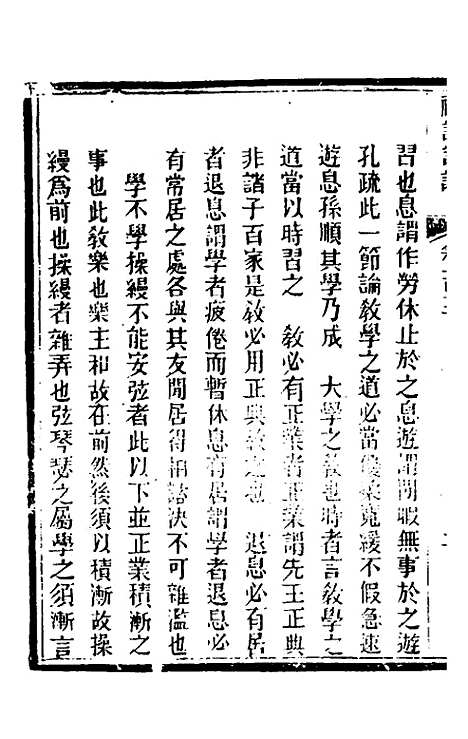 習也息謂作勞休止於之息遊謂閒暇無事於之遊
孔疏此一節論教學之道必當優柔寬緩不假急速
遊息孫順其學乃成　大學之教也時者言教學之
道當以時習之　教必有正業者正業謂先王正典
非諸子百家是教必用正典教之也　退息必有居
者退息謂學者疲倦而暫休息有居謂學者退息必
有常居之處各與其友閒居得相諮決不可雜濫也
學不學操縵不能安弦者此以下並正業積漸之
事也此教樂也樂主和故在前然後須以積漸故操
縵爲前也操縵者雜弄也弦琴瑟之屬學之須漸言